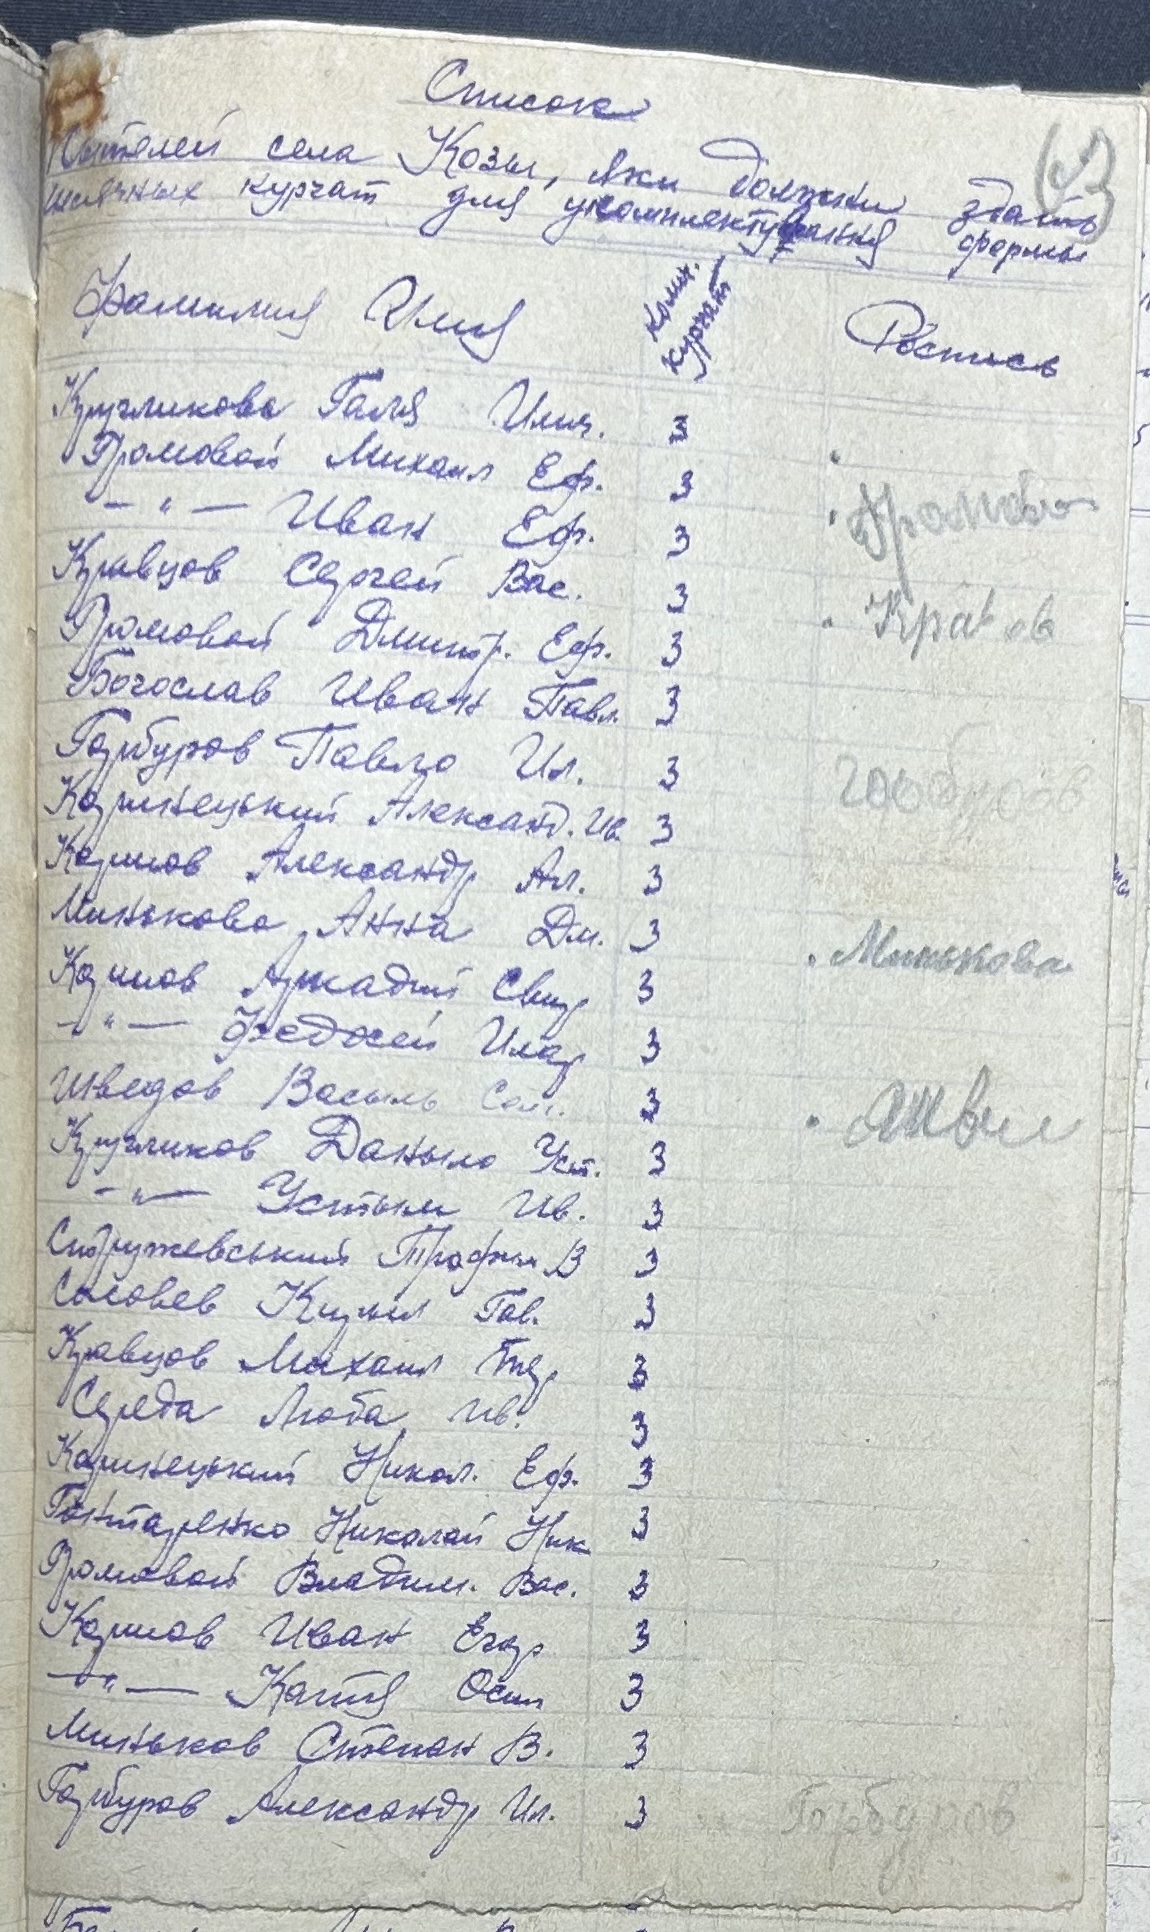 Список
Жителей села Козы, яки должни здать
месячных курчат для укомплектування формы
63
Фамилия Имя Колич. курчат Роспись
Кругликова Галя Илич. 3
Громовой Михаил Еф. 3
— " — Иван Еф. 3 Громово
Кравцов Сергей Вас. 3 Кравцов
Громовой Дмитр. Еф. 3
Богослав Иван Павл. 3
Гарбуров Павло Ил. 3
Каринецький Александ. Ив. 3
Карпов Александр Ал. 3
Минькова Анна Дм. 3 Минькова
Карпов Аркадий Свир 3
— " — Федосей Илар 3
Шведов Васыль Сам. 3
Кругликов Даныло Уст. 3
— " — Устым Ив. 3
Стружевський Трофим В 3
Соловев Кирил Гав. 3
Кравцов Михаил 3
Середа Люба Ив. 3
Каринецький Никол. Еф. 3
Гонтаренко Николай Ник 3
Громовой Владим. Вас. 3
Карпов Иван Егор 3
— " — Катя Осип 3
Миньков Степан В. 3
Гарбуров Александр Ил. 3 Гарбуров